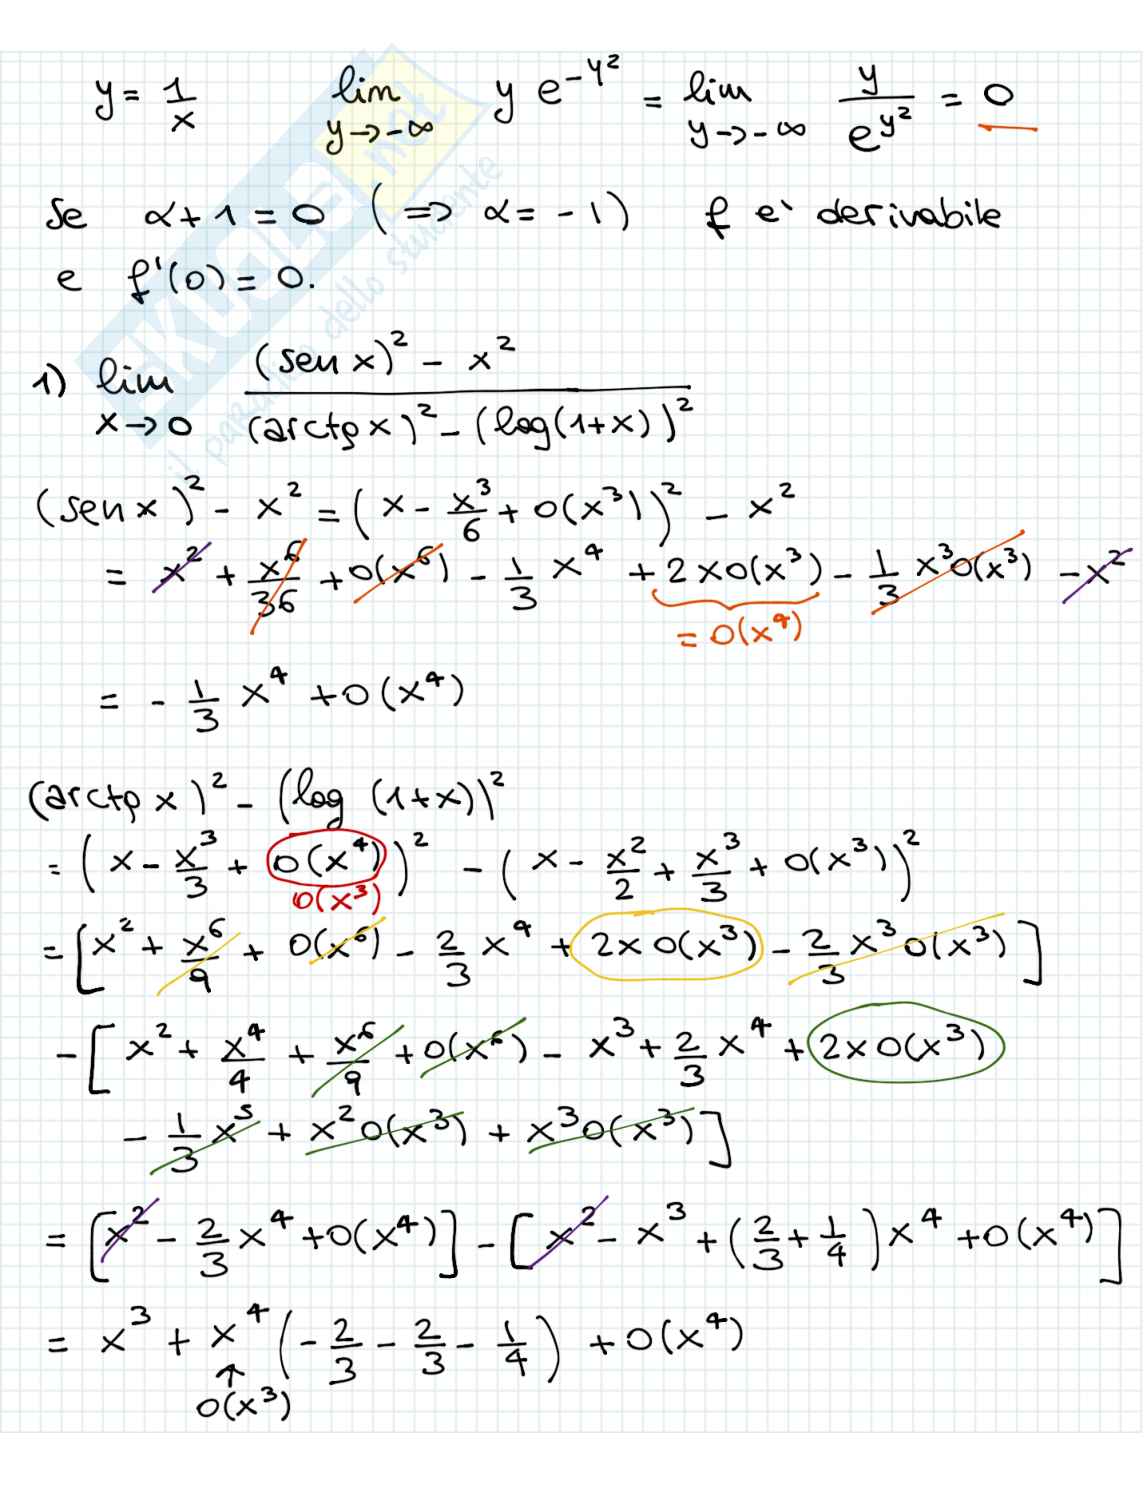 y = 1/x lim y→-∞ y e^{-y²} = lim y→-∞ y/e^{y²} = 0
Se α+1=0 (=> α=-1) f e' derivabile
e f'(0)=0.
1) lim x→0 ((sen x)² - x²)/((arctg x)² - (log(1+x))²)
(sen x)² - x² = (x - x³/6 + o(x³))² - x²
= x² + x⁶/36 + o(x⁶) - 1/3 x⁴ + 2x o(x³) - 1/3 x³o(x³) - x²
= o(x⁴)
= - 1/3 x⁴ + o(x⁴)
(arctg x)² - (log (1+x))²
= (x - x³/3 + o(x⁴))² - (x - x²/2 + x³/3 + o(x³))²
o(x³)
= [x² + x⁶/9 + o(x⁶) - 2/3 x⁴ + 2x o(x³) - 2/3 x³ o(x³)]
- [x² + x⁴/4 + x⁶/9 + o(x⁶) - x³ + 2/3 x⁴ + 2x o(x³)
- 1/3 x⁵ + x² o(x³) + x³o(x³)]
= [x² - 2/3 x⁴ + o(x⁴)] - [x² - x³ + (2/3 + 1/4) x⁴ + o(x⁴)]
= x³ + x⁴ (-2/3 - 2/3 - 1/4) + o(x⁴)
↑
o(x³)
SKUOLA.net
il paradiso dello studente